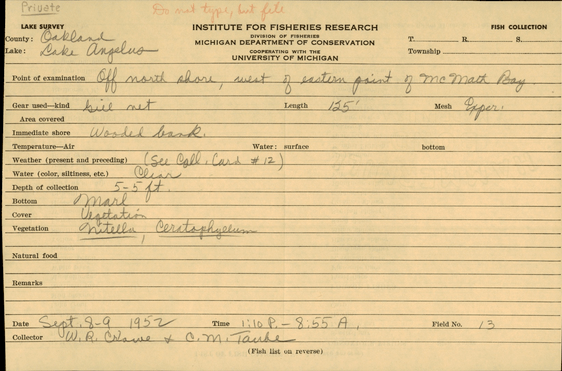 Private
Do not type, but file
LAKE SURVEY
INSTITUTE FOR FISHERIES RESEARCH
FISH COLLECTION
DIVISION OF FISHERIES
County: Oakland
MICHIGAN DEPARTMENT OF CONSERVATION
T. R. S.
Lake: Lake Angelus
COOPERATING WITH THE
Township
UNIVERSITY OF MICHIGAN
Point of examination Off north shore, west of eastern point of McMath Bay
Gear used—kind gill net Length 125' Mesh Exper.
Area covered
Immediate shore Wooded bank.
Temperature—Air Water: surface bottom
Weather (present and preceding) (See Coll. Card #12)
Water (color, siltiness, etc.) Clear
Depth of collection 5-5 ft.
Bottom Marl
Cover Vegetation
Vegetation Nitella, Ceratophyllum
Natural food
Remarks
Date Sept. 8-9 1952 Time 1:10 P. - 8:55 A. Field No. 13
Collector W. R. Crowe & C. M. Taube
(Fish list on reverse)